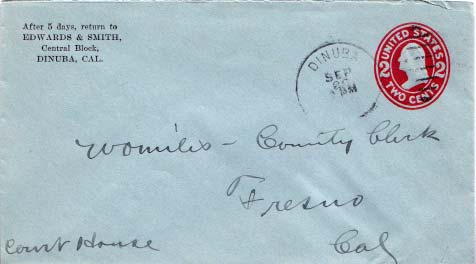 After 5 days, return to
EDWARDS & SMITH,
Central Block,
DINUBA, CAL.
DINUBA
SEP
PM
UNITED STATES
2 2
TWO CENTS
County Clerk
Fresno
Court House
Cal